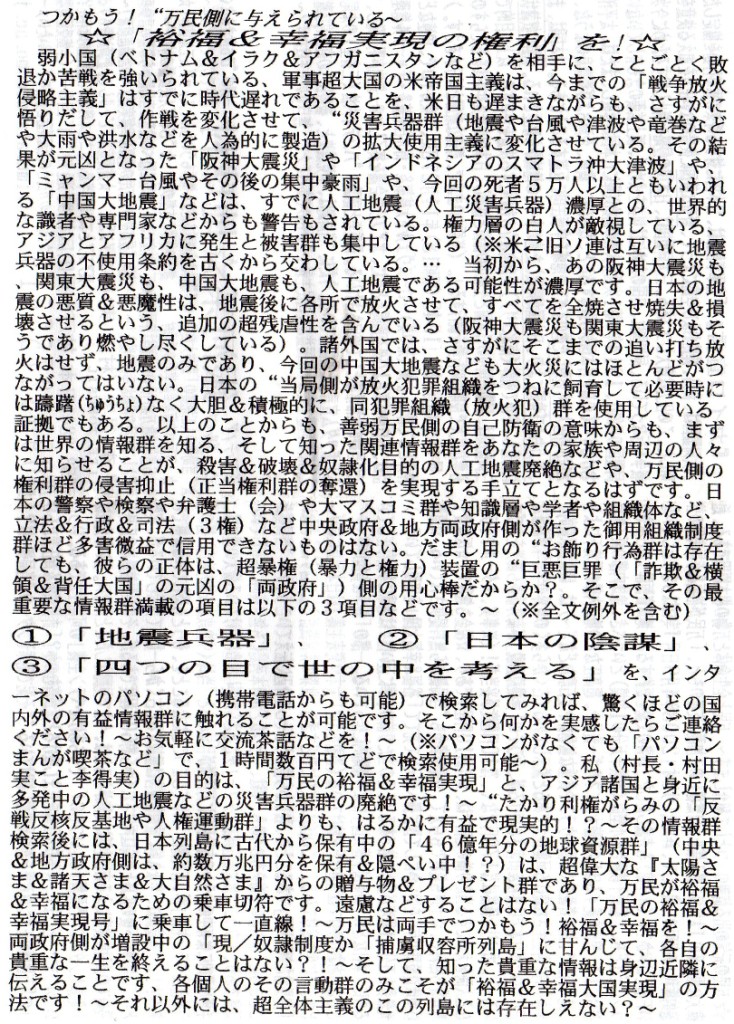 つかもう！ “万民側に与えられている～
☆「裕福＆幸福実現の権利」を！☆
弱小国（ベトナム＆イラク＆アフガニスタンなど）を相手に、ことごとく敗
退か苦戦を強いられている、軍事超大国の米帝国主義は、今までの「戦争放火
侵略主義」はすでに時代遅れであることを、米日も遅まきながらも、さすがに
悟りだして、作戦を変化させて、“災害兵器群（地震や台風や津波や竜巻など
や大雨や洪水などを人為的に製造）の拡大使用主義に変化させている。その結
果が元凶となった「阪神大震災」や「インドネシアのスマトラ沖大津波」や、
「ミャンマー台風やその後の集中豪雨」や、今回の死者５万人以上ともいわれ
る「中国大地震」などは、すでに人工地震（人工災害兵器）濃厚との、世界的
な識者や専門家などからも警告もされている。権力層の白人が敵視している、
アジアとアフリカに発生と被害群も集中している（※米⇄旧ソ連は互いに地震
兵器の不使用条約を古くから交わしている。… 当初から、あの阪神大震災も
、関東大震災も、中国大地震も、人工地震である可能性が濃厚です。日本の地
震の悪質＆悪魔性は、地震後に各所で放火させて、すべてを全焼させ焼失＆損
壊させるという、追加の超残虐性を含んでいる（阪神大震災も関東大震災もそ
うであり燃やし尽くしている）。諸外国では、さすがにそこまでの追い打ち放
火はせず、地震のみであり、今回の中国大地震なども大火災にはほとんどがつ
ながってはいない。日本の“当局側が放火犯罪組織をつねに飼育して必要時に
は躊躇(ちゅうちょ)なく大胆＆積極的に、同犯罪組織（放火犯）群を使用している
証拠でもある。以上のことからも、善弱万民側の自己防衛の意味からも、まず
は世界の情報群を知る、そして知った関連情報群をあなたの家族や周辺の人々
に知らせることが、殺害＆破壊＆奴隷化目的の人工地震廃絶などや、万民側の
権利群の侵害抑止（正当権利群の奪還）を実現する手立てとなるはずです。日
本の警察や検察や弁護士（会）や大マスコミ群や知識層や学者や組織体など、
立法＆行政＆司法（３権）など中央政府＆地方両政府側が作った御用組織制度
群ほど多害微益で信用できないものはない。だまし用の“お飾り行為群は存在
しても、彼らの正体は、超暴権（暴力と権力）装置の“巨悪巨罪（「詐欺＆横
領＆背任大国」の元凶の「両政府」）側の用心棒だからか？。そこで、その最
重要な情報群満載の項目は以下の３項目などです。～（※全文例外を含む）
①「地震兵器」、 ②「日本の陰謀」、
③「四つの目で世の中を考える」を、インタ
ーネットのパソコン（携帯電話からも可能）で検索してみれば、驚くほどの国
内外の有益情報群に触れることが可能です。そこから何かを実感したらご連絡
ください！～お気軽に交流茶話などを！～（※パソコンがなくても「パソコン
まんが喫茶など」で、１時間数百円てどで検索使用可能～）。私（村長・村田
実こと李得実）の目的は、「万民の裕福＆幸福実現」と、アジア諸国と身近に
多発中の人工地震などの災害兵器群の廃絶です！～“たかり利権がらみの「反
戦反核反基地や人権運動群」よりも、はるかに有益で現実的！？～その情報群
検索後には、日本列島に古代から保有中の「４６億年分の地球資源群」（中央
＆地方政府側は、約数万兆円分を保有＆隠ぺい中！？）は、超偉大な『太陽さ
ま＆諸天さま＆大自然さま』からの贈与物＆プレゼント群であり、万民が裕福
＆幸福になるための乗車切符です。遠慮などすることはない！「万民の裕福＆
幸福実現号」に乗車して一直線！～万民は両手でつかもう！裕福＆幸福を！～
両政府側が増設中の「現／奴隷制度か「捕虜収容所列島」に甘んじて、各自の
貴重な一生を終えることはない？！～そして、知った貴重な情報は身辺近隣に
伝えることです、各個人のその言動群のみこそが「裕福＆幸福大国実現」の方
法です！～それ以外には、超全体主義のこの列島には存在しえない？～